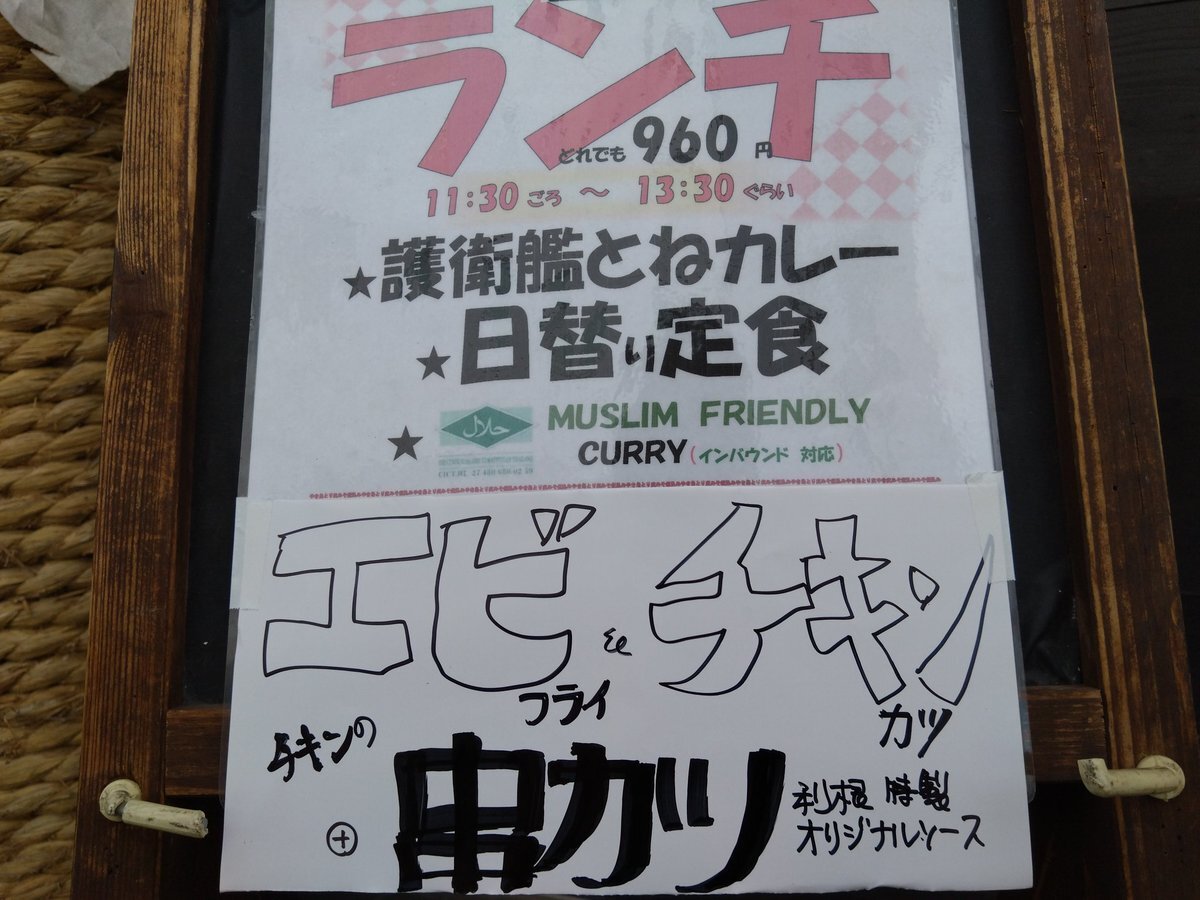 ランチ
どれでも 960 円
11:30 ごろ ～ 13:30 ぐらい
★護衛艦とねカレー
★日替り定食
★ حلال MUSLIM FRIENDLY
CURRY(インバウンド 対応)
エビ & チキン
フライ
カツ
チキンの
⊕ 串カツ
利根 特製
オリジナルソース